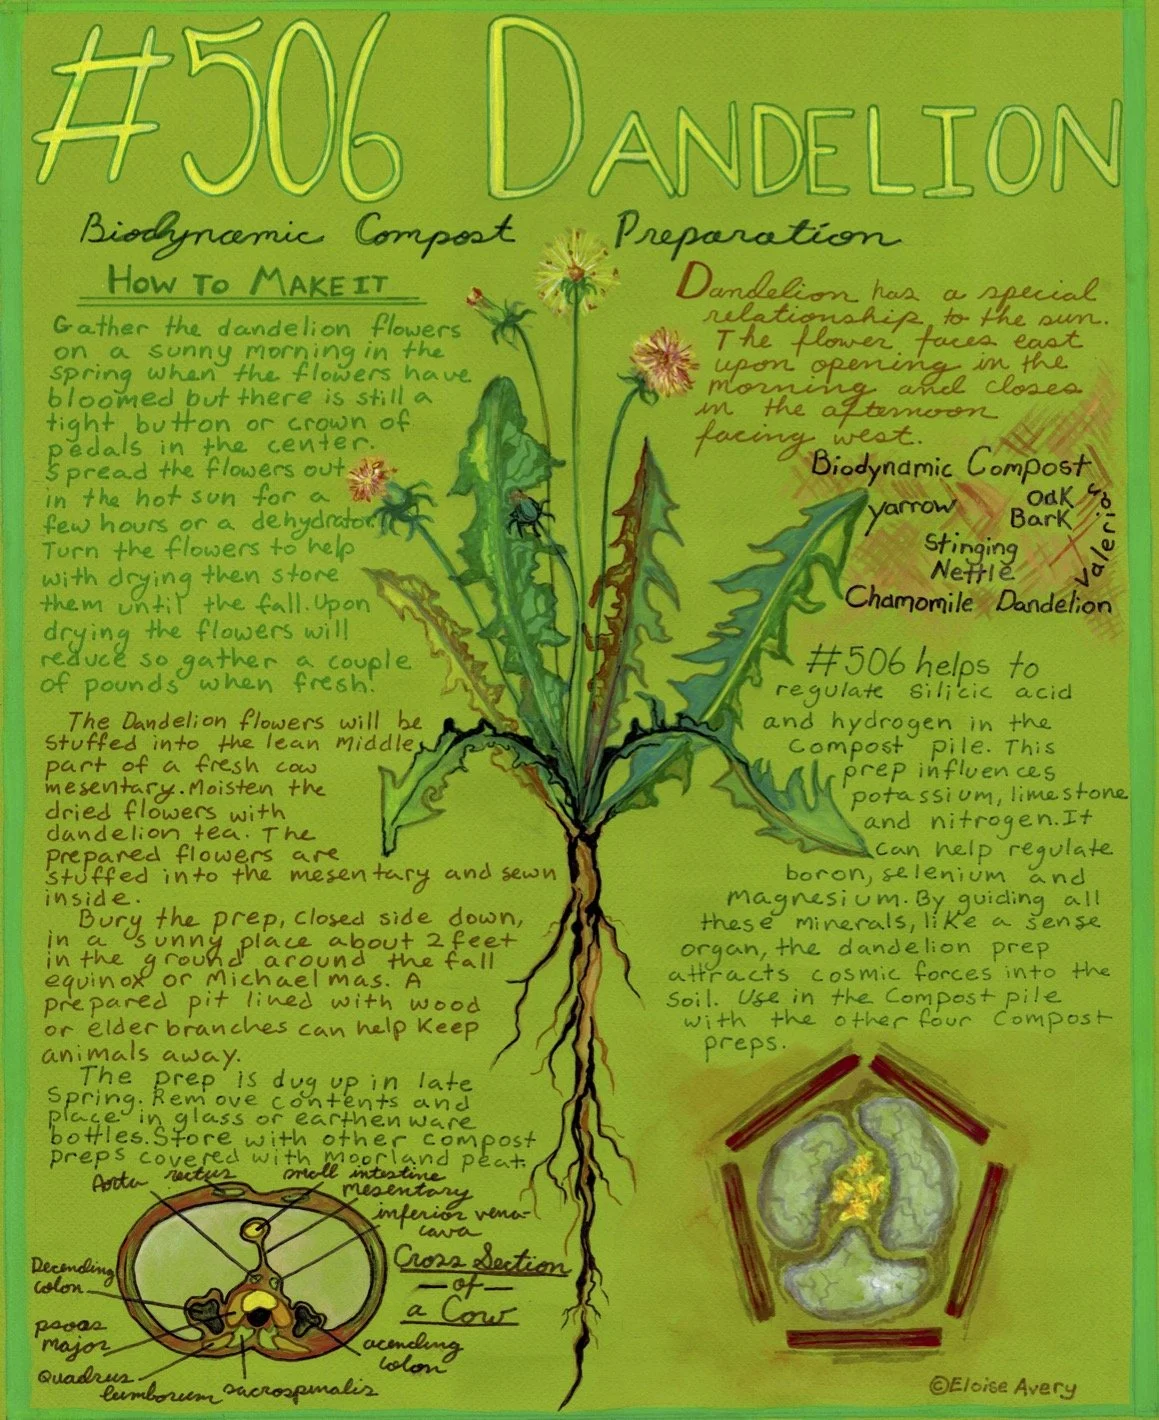 #506 DANDELION
Biodynamic Compost Preparation
HOW TO MAKE IT
Gather the dandelion flowers
on a sunny morning in the
spring when the flowers have
bloomed but there is still a
tight button or crown of
pedals in the center.
Spread the flowers out
in the hot sun for a
few hours or a dehydrator.
Turn the flowers to help
with drying then store
them until the fall. Upon
drying the flowers will
reduce so gather a couple
of pounds when fresh.
The Dandelion flowers will be
stuffed into the lean middle
part of a fresh cow
mesentary. Moisten the
dried flowers with
dandelion tea. The
prepared flowers are
stuffed into the mesentary and sewn
inside.
Bury the prep, closed side down,
in a sunny place about 2 feet
in the ground around the fall
equinox or Michael mas. A
prepared pit lined with wood
or elder branches can help keep
animals away.
The prep is dug up in late
Spring. Remove contents and
place in glass or earthen ware
bottles. Store with other compost
preps covered with moorland peat.
Dandelion has a special
relationship to the sun.
The flower faces east
upon opening in the
morning and closes
in the afternoon
facing west.
Biodynamic Compost
yarrow
Oak
Bark
Valerian
Stinging
Nettle
Chamomile Dandelion
#506 helps to
regulate silicic acid
and hydrogen in the
compost pile. This
prep influences
potassium, limestone
and nitrogen. It
can help regulate
boron, selenium and
magnesium. By guiding all
these minerals, like a sense
organ, the dandelion prep
attracts cosmic forces into the
soil. Use in the compost pile
with the other four compost
preps.
Aorta rectus small intestine
mesentary
inferior vena-
cava
Decending
colon
psoas
major
Quadrus
lumborum
sacrospinalis
acending
colon
Cross Section
—of—
a Cow
©Eloise Avery